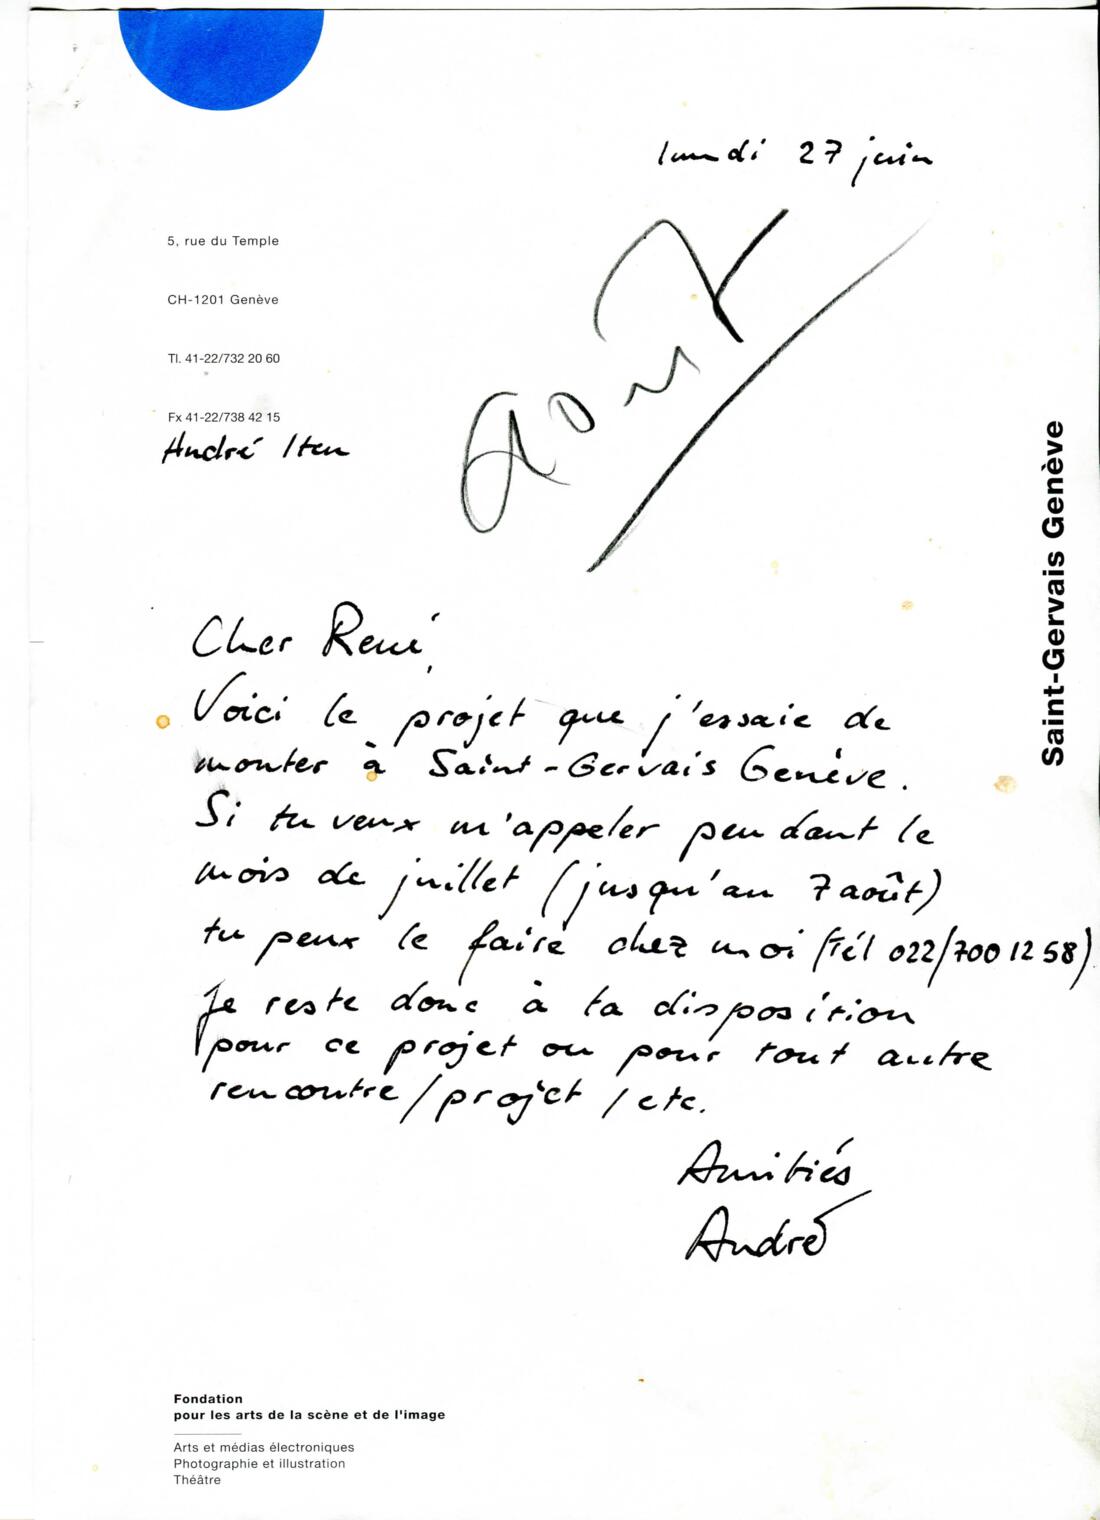 lundi 27 juin
5, rue du Temple
CH-1201 Genève
Tl. 41-22/732 20 60
Fx 41-22/738 42 15
André Iten
août
Saint-Gervais Genève
Cher René,
Voici le projet que j'essaie de
monter à Saint-Gervais Genève.
Si tu veux m'appeler pendant le
mois de juillet (jusqu'au 7 août)
tu peux le faire chez moi (Tél 022/700 12 58)
Je reste donc à ta disposition
pour ce projet ou pour tout autre
rencontre/projet/etc.
Amitiés
André
Fondation
pour les arts de la scène et de l'image
Arts et médias électroniques
Photographie et illustration
Théâtre